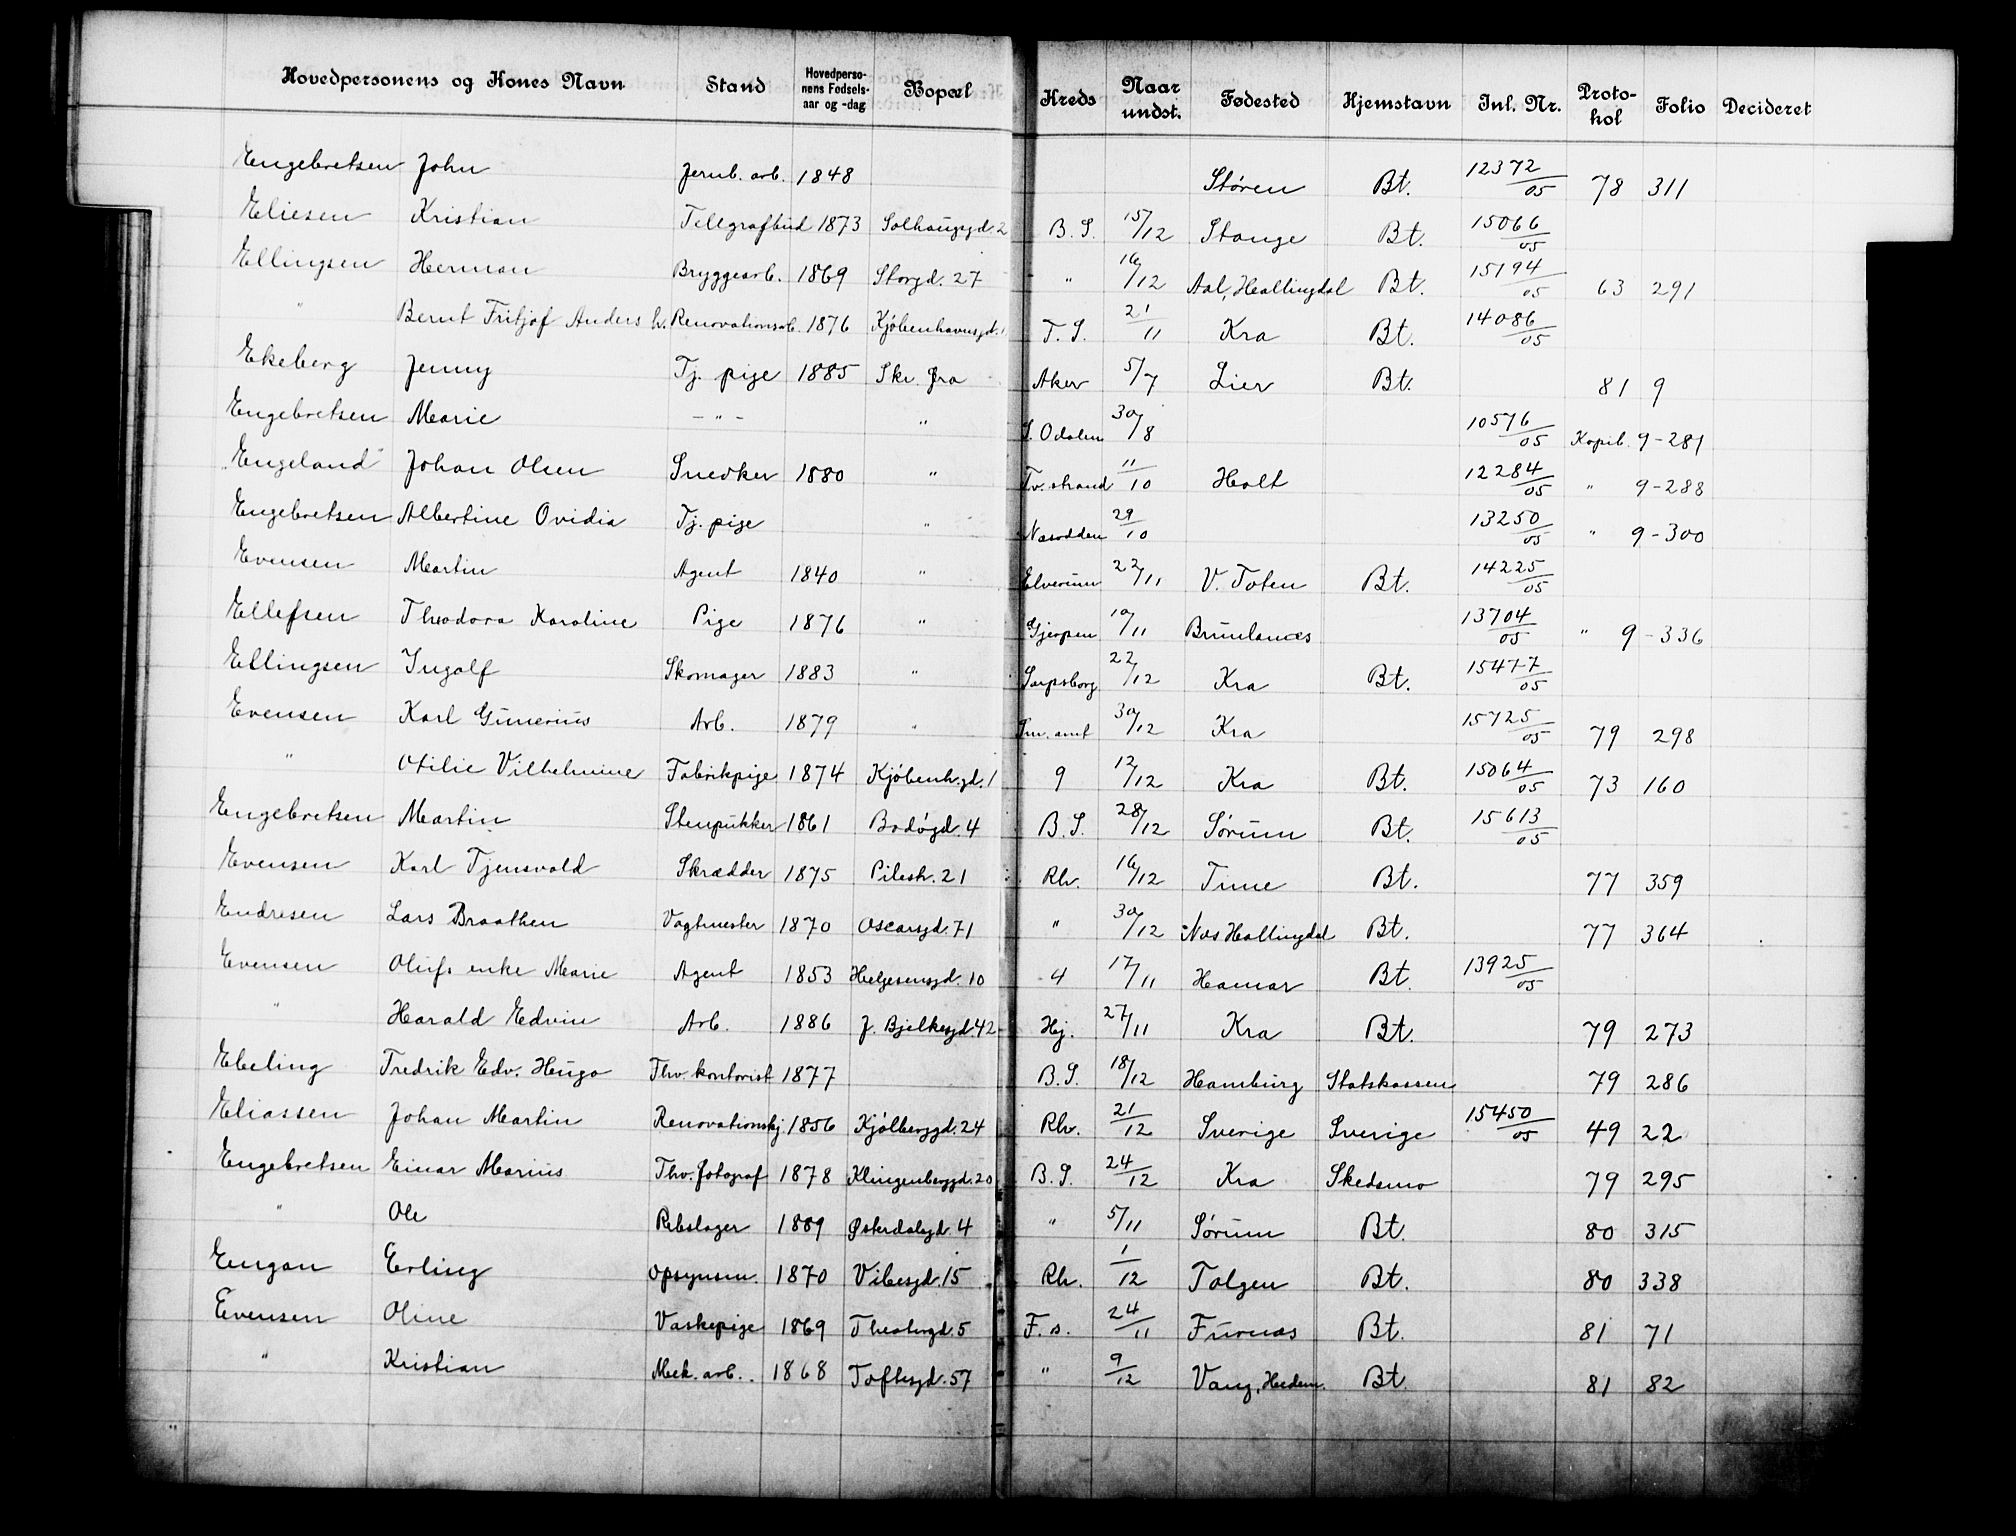 Hovedpersonens og Kones Navn Stand Hovedpersonens Fødselsaar og -dag Bopæl Kreds Naar undst. Fødested Hjemstavn Inl. Nr. Protokol Folio Decideret
Engebretsen John Jernb. arb. 1848 Støren Bt. 12372/05 78 311
Eliesen Kristian Telegrafbud 1873 Solhaugsgd. 2 B. S. 15/12 Stange Bt. 15066/05
Ellingsen Herman Bryggearb. 1869 Storgd. 27 " 16/12 Aal, Hallingdal Bt. 15194/05 63 291
" Bernt Fritjof Anders h. Renovationsarb. 1876 Kjøbenhavnsgd. 1 T. S. 21/11 Kra Bt. 14086/05
Ekeberg Jenny Tj. pige 1885 Skr. fra Aker 5/7 Lier Bt. 81 9
Engebretsen Marie - " - " S. Odalen 30/8 10576/05 Kopib. 9-281
"Engeland" Johan Olsen Snedker 1880 " Tv.strand 11/10 Holt 12284/05 " 9-288
Engebretsen Albertine Ovidia Tj. pige " Næsodden 29/10 13250/05 " 9-300
Evensen Martin Agent 1840 " Elverum 22/11 V. Toten Bt. 14225/05
Ellefsen Theodora Karoline Pige 1876 " Gjerpen 10/11 Brunlanes 13704/05 " 9-336
Ellingsen Ingolf Skomager 1883 " Sarpsborg 22/12 Kra Bt. 15477/05
Evensen Karl Gunerius Arb. 1879 " Sm. amt 30/12 Kra 15725/05 79 298
" Otilie Vilhelmine Fabrikpige 1874 Kjøbenh.gd. 1 9 12/12 Kra Bt. 15064/05 73 160
Engebretsen Martin Stenpukker 1861 Bodøgd. 4 B. S. 28/12 Sørum Bt. 15613/05
Evensen Karl Tjensvold Skrædder 1875 Pilestr. 21 Rh. 16/12 Time Bt. 77 359
Endresen Lars Braathen Vagtmester 1870 Oscarsgd. 71 " 30/12 Nes Hallingdal Bt. 77 364
Evensen Olufs enke Marie Agent 1853 Helgesensgd. 10 4 17/11 Hamar Bt. 13925/05
" Harald Edvin Arb. 1886 J. Bjelkesgd 42 Hj. 27/11 Kra Bt. 79 273
Ebeling Fredrik Edv. Hugo Fhv. kontorist 1877 B. S. 18/12 Hamburg Statskassen 79 286
Eliassen Johan Martin Renovationskj. 1856 Kjølberggd. 24 Rh. 21/12 Sverige Sverige 15450/05 49 22
Engebretsen Einar Marius Fhv. fotograf 1878 Klingenberggd. 20 B. S. 24/12 Kra Skedsmo 79 295
" Ole Rebslager 1889 Østerdalsgd. 4 " 5/11 Sørum Bt. 80 315
Engan Erling Opsynsm. 1870 Vibesgd. 15 Rh. 1/12 Tolgen Bt. 80 338
Evensen Oline Vaskepige 1869 Theatergd. 5 F. s. 24/11 Furnes Bt. 81 71
" Kristian Mek. arb. 1868 Toftesgd. 57 " 9/12 Vang, Hedem. Bt. 81 82